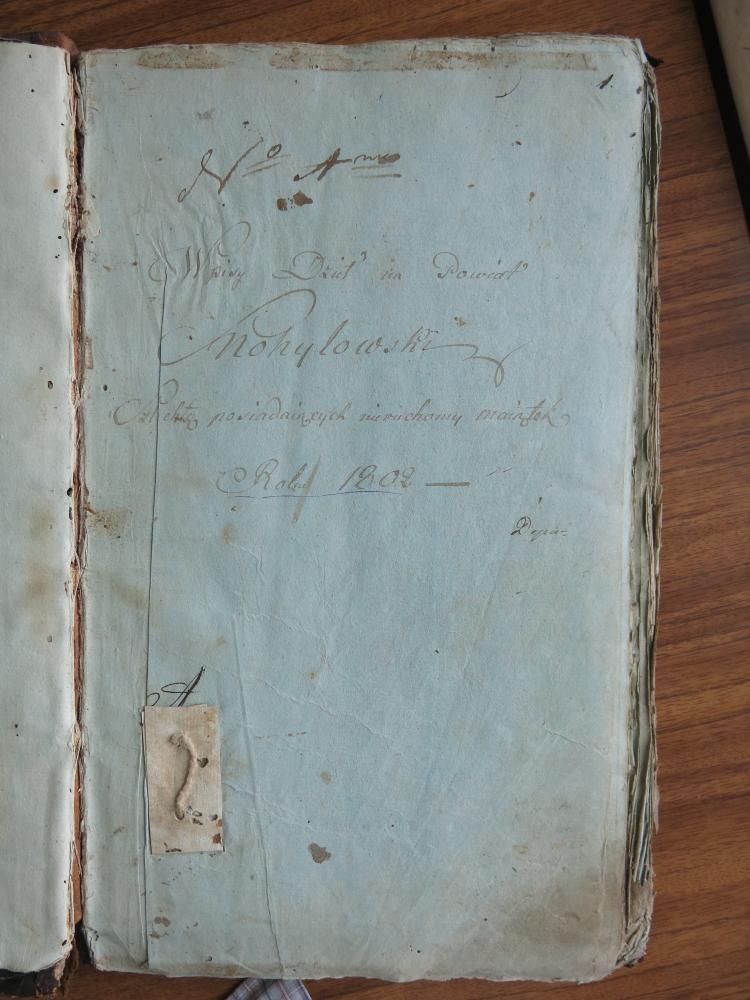 1.
No
Wpisy Dzieł na Powiat
Mohylowski
Szlachtę posiadaiących nieruchomy maiątek
Roku 1802 —
A